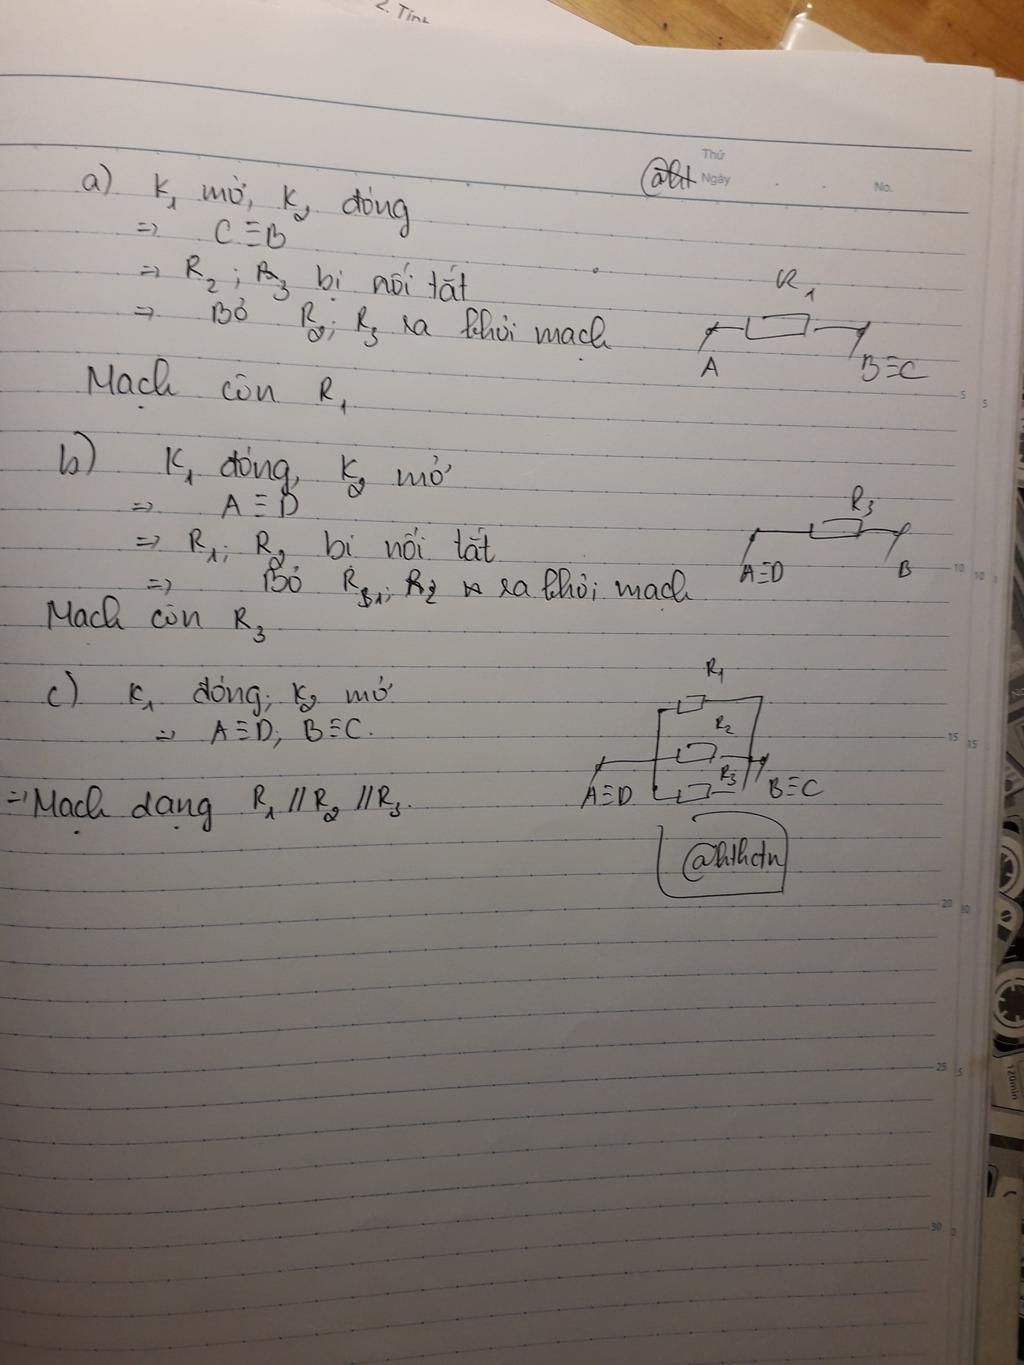 2. Tính
Thứ
@ht Ngày
No.
a) K₁ mở, K₂ đóng
=> C≡B
=> R₂; R₃ bị nối tắt
=> Bỏ R₂; R₃ ra khỏi mạch
Mạch còn R₁
R₁
A
B≡C
b) K₁ đóng, K₂ mở
=> A≡D
=> R₁; R₂ bị nối tắt
=> Bỏ R₁; R₂ ra khỏi mạch
Mạch còn R₃
R₃
A≡D
B
c) K₁ đóng; K₂ mở
=> A≡D; B≡C.
=> Mạch dạng R₁ // R₂ // R₃.
R₁
R₂
R₃
A≡D
B≡C
@hthctn
5
5
10
10
15
15
20
20
25
5
30
120min